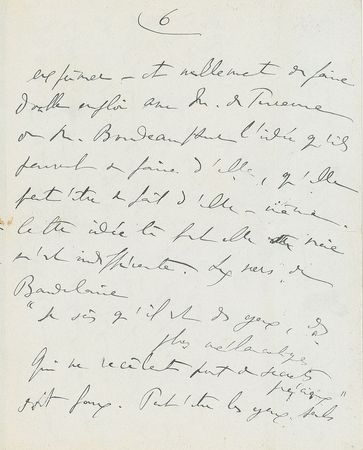 6
exprimer – et nullement de faire
double emploi avec M. de Turenne
ou M. Bordeaux l'idée qu'ils
peuvent se faire d'elle, qu'elle
peut-être se fait d'elle-même.
Cette idée là fut elle vraie
m'est indifférente. Les vers de
Baudelaire
"Je sais qu'il est des yeux, des
plus mélancoliques
Qui ne recèlent point de secrets
précieux"
sont faux. Peut'être les yeux seuls